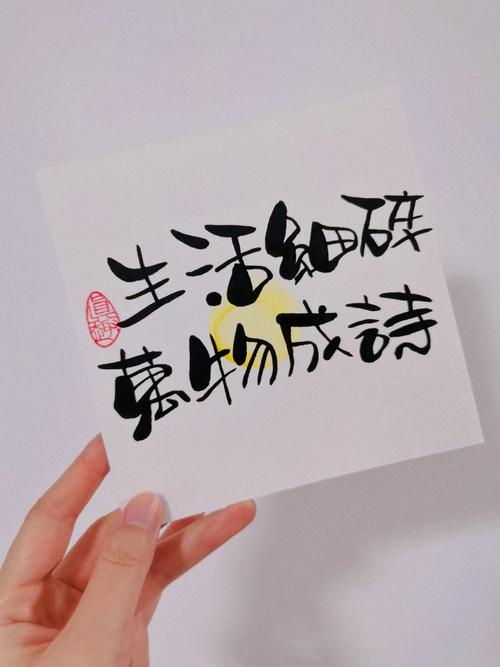 生活細碎
萬物成詩